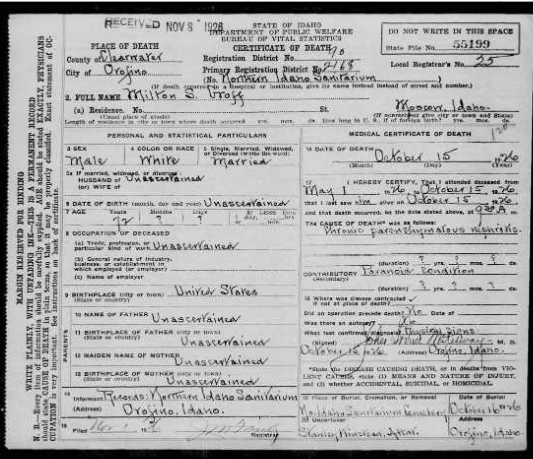 RECEIVED NOV 8 1926
STATE OF IDAHO
DEPARTMENT OF PUBLIC WELFARE
BUREAU OF VITAL STATISTICS
CERTIFICATE OF DEATH
DO NOT WRITE IN THIS SPACE
State File No. 55199
Local Registrar's No. 25
PLACE OF DEATH
County of Clearwater
City of Orofino
Registration District No.
Primary Registration District No. 2168
(No. Northern Idaho Sanitarium
(If death occurred in a hospital or institution, give its name instead of street and number.)
2. FULL NAME Milton S.
(a) Residence. No. St. Moscow, Idaho.
(Usual place of abode) (If nonresident give city or town and State)
Length of residence in city or town where death occurred yrs. mos. ds. How long in U. S., if of foreign birth? yrs. mos. ds.
PERSONAL AND STATISTICAL PARTICULARS
3 SEX Male
4 COLOR OR RACE White
5 Single, Married, Widowed, or Divorced (write the word) Married
5a If married, widowed, or divorced
HUSBAND of Unascertained
(or) WIFE of
6 DATE OF BIRTH (month, day and year) Unascertained
7 AGE Years Months Days If LESS than
8 OCCUPATION OF DECEASED
(a) Trade, profession, or particular kind of work Unascertained
(b) General nature of industry, business, or establishment in which employed (or employer)
(c) Name of employer
9 BIRTHPLACE (city or town) United States
(State or country)
PARENTS
10 NAME OF FATHER Unascertained
11 BIRTHPLACE OF FATHER (city or town)
(State or country) Unascertained
12 MAIDEN NAME OF MOTHER Unascertained
13 BIRTHPLACE OF MOTHER (city or town)
(State or country) Unascertained
14 Informant Records: Northern Idaho Sanitarium
(Address) Orofino, Idaho.
15 Filed Nov 1
Registrar
MEDICAL CERTIFICATE OF DEATH
16 DATE OF DEATH October 15 1926
(Month) (Day) (Year)
17 I HEREBY CERTIFY, That I attended deceased from
May 1 1926, to October 15, 1926
that I last saw him alive on October 15, 1926
and that death occurred, on the date stated above, at
The CAUSE OF DEATH was as follows:
Chronic parenchymatous nephritis.
(duration) ? yrs. ? mos. ? ds.
CONTRIBUTORY Paranoid condition
(Secondary)
(duration) ? yrs. ? mos. ? ds.
18 Where was disease contracted
if not at place of death?
Did an operation precede death? No
Was there an autopsy?
What test confirmed diagnosis? Physical Signs
(Signed) John M. D.
October 15 1926 (Address) Orofino, Idaho.
*State the DISEASE CAUSING DEATH, or in deaths from VIOLENT CAUSES, state (1) MEANS AND NATURE OF INJURY, and (2) whether ACCIDENTAL, SUICIDAL, or HOMICIDAL.
19 Place of Burial, Cremation, or Removal Date of Burial
No. Idaho Sanitarium Cemetery October 16 1926
20 Undertaker (Address)
Stanley Orofino, Idaho
MARGIN RESERVED FOR BINDING
WRITE PLAINLY, WITH UNFADING INK—THIS IS A PERMANENT RECORD
N. B.—Every item of information should be carefully supplied. AGE should be stated EXACTLY. PHYSICIANS should state CAUSE OF DEATH in plain terms, so that it may be properly classified. Exact statement of OCCUPATION is very important. See instructions on back of certificate.